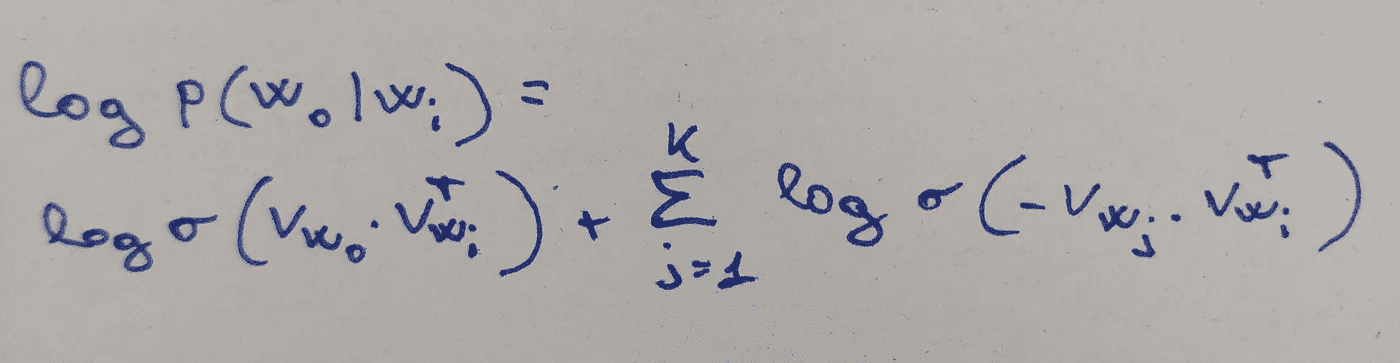 log p(w₀|wᵢ) =
log σ(v_{w₀} · v_{wᵢ}^T) + ∑_{j=1}^{K} log σ(-v_{wⱼ} · v_{wᵢ}^T)